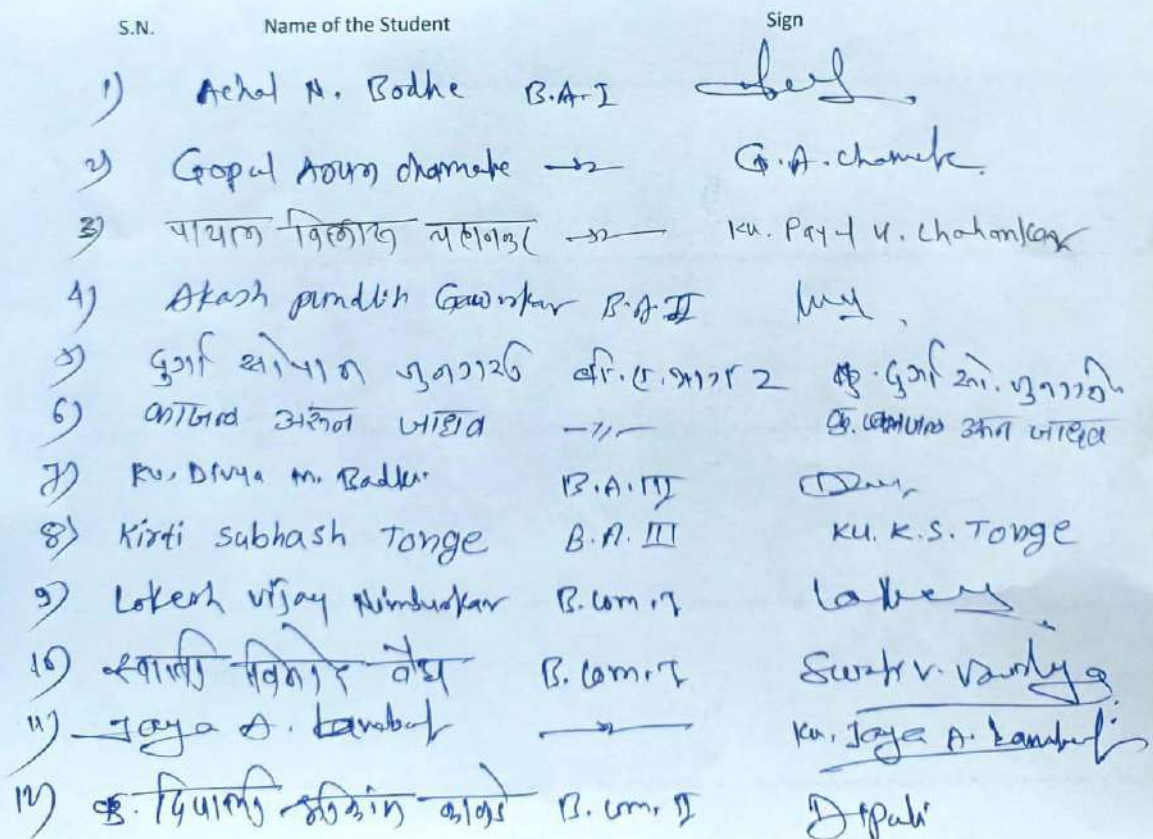 S.N. Name of the Student Sign
1) Achal N. Bodhe B.A.I
2) Gopal Arun chamate —〃— G.A. chamate
3) पायल विलास चहानकर —〃— Ku. Payal V. Chahankar
4) Akash Gawnskar B.A.II
5) दुर्गा सोपान बी.ए.भाग 2 कु. दुर्गा सो.
6) काजल अर्जुन जाधव —〃— कु. काजल जाधव
7) Ku. Divya M. B.A.III
8) Kirti Subhash Tonge B.A.III KU. K.S. Tonge
9) Lokesh Vijay B.Com.I
10) स्वाती विनोद वैद्य B.Com.I Swati V. Vaidya
11) Jaya A. —〃— Ku. Jaya A.
12) कु. दिपाली काळे B.Com.II Dipali